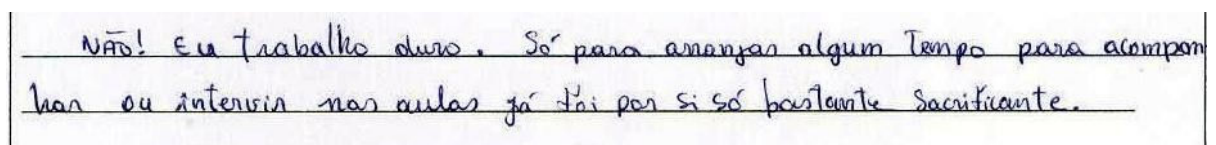 NÃO! Eu trabalho duro. Só para arranjar algum Tempo para acompan
har ou intervir nas aulas já foi por si só bastante Sacrificante.